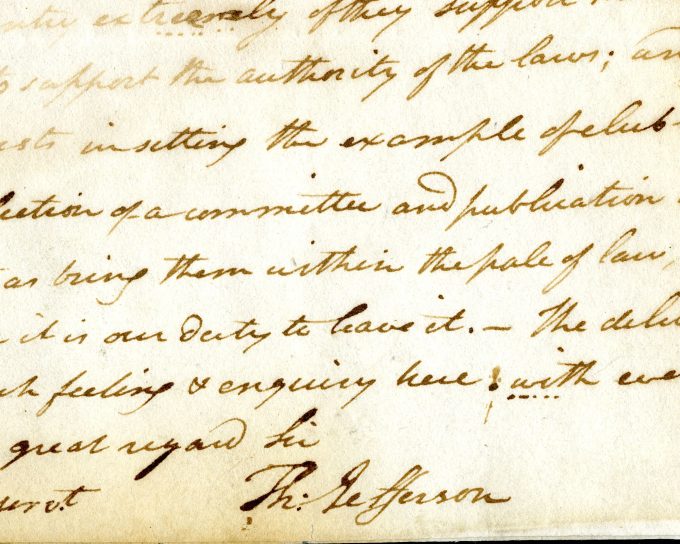 extremely if they support
to support the authority of the laws; an
in setting the example of club-
lection of a committee and publication
as bring them within the pale of law,
it is our duty to leave it. – The delu
feeling & enquiry here. with eve
great regard Sir
servt
Th: Jefferson